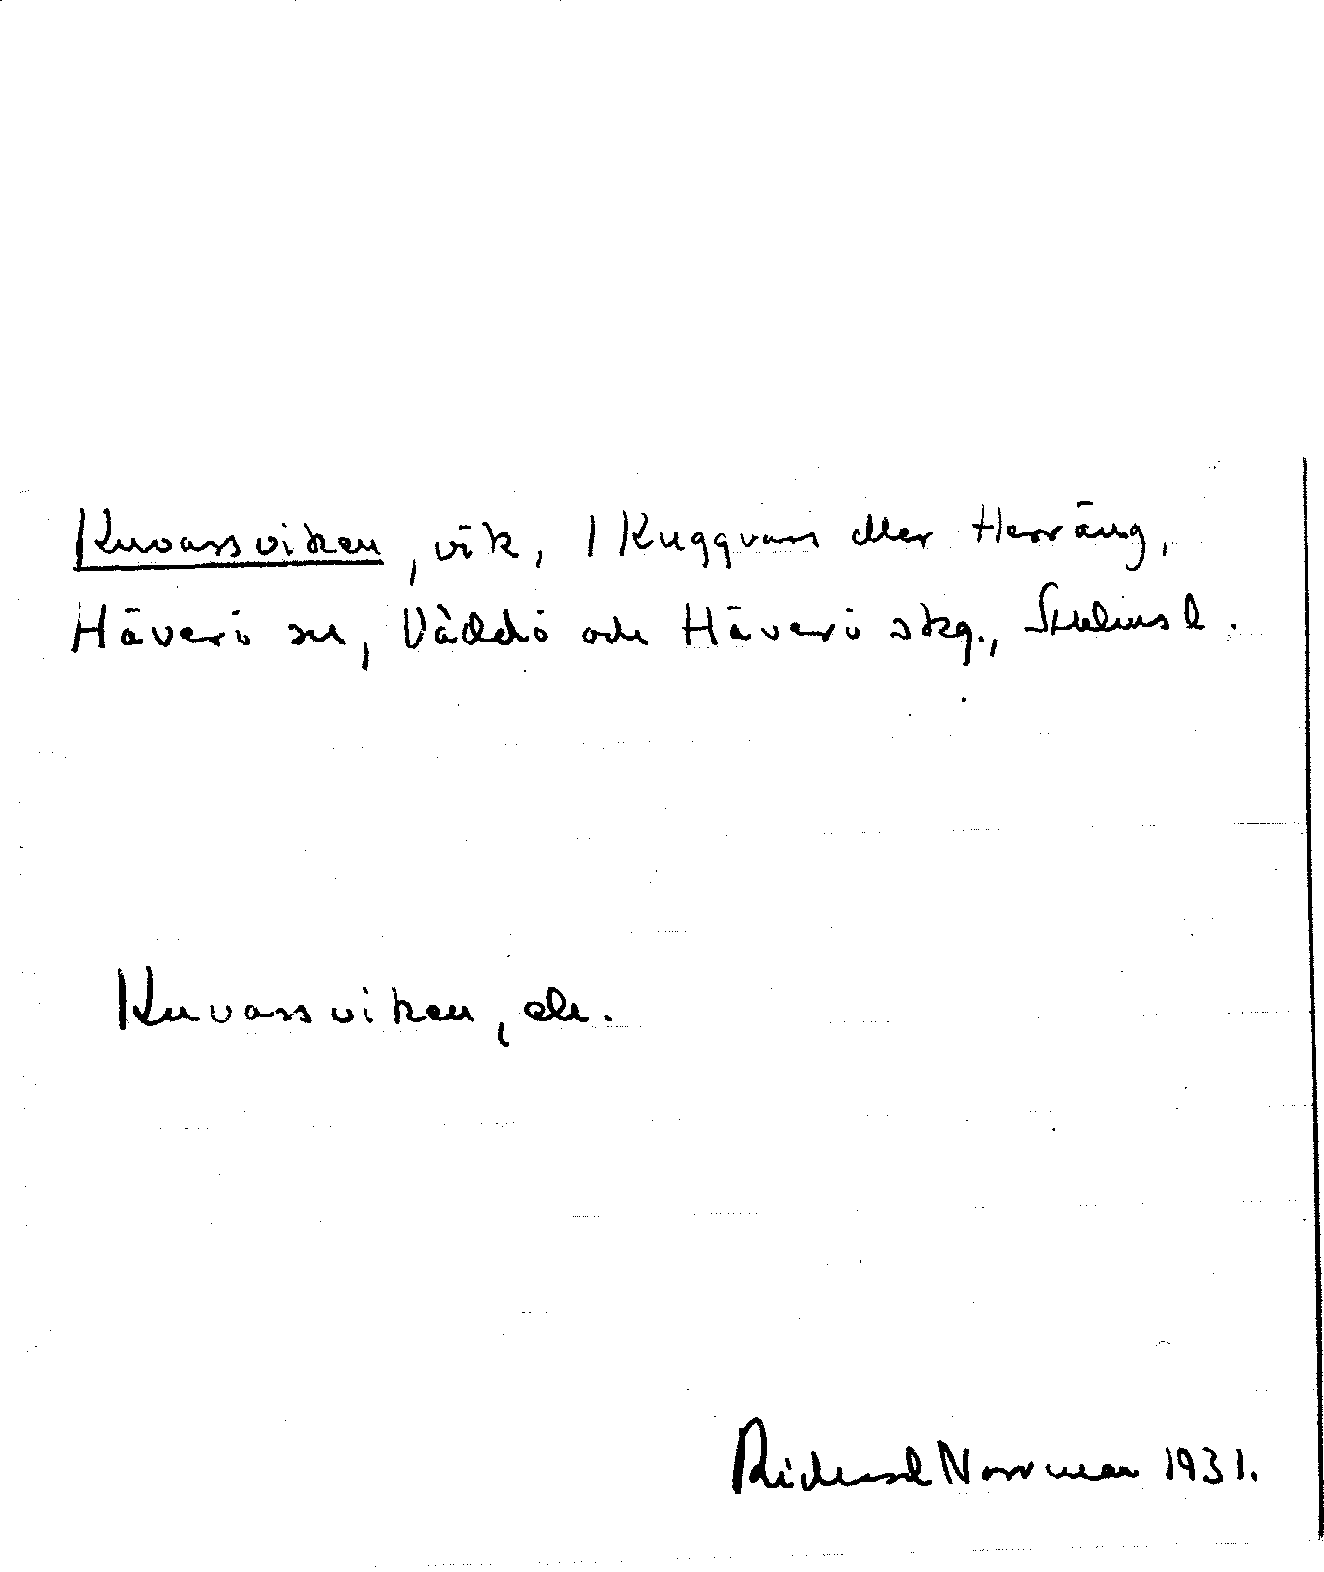 Kuvassviken, vik, 1 Kuggvass eller Herräng,
Häverö sn, Väddö och Häverö skg., Sthlms l.
Kuvassviken, dr.
Rickard Norrman 1931.